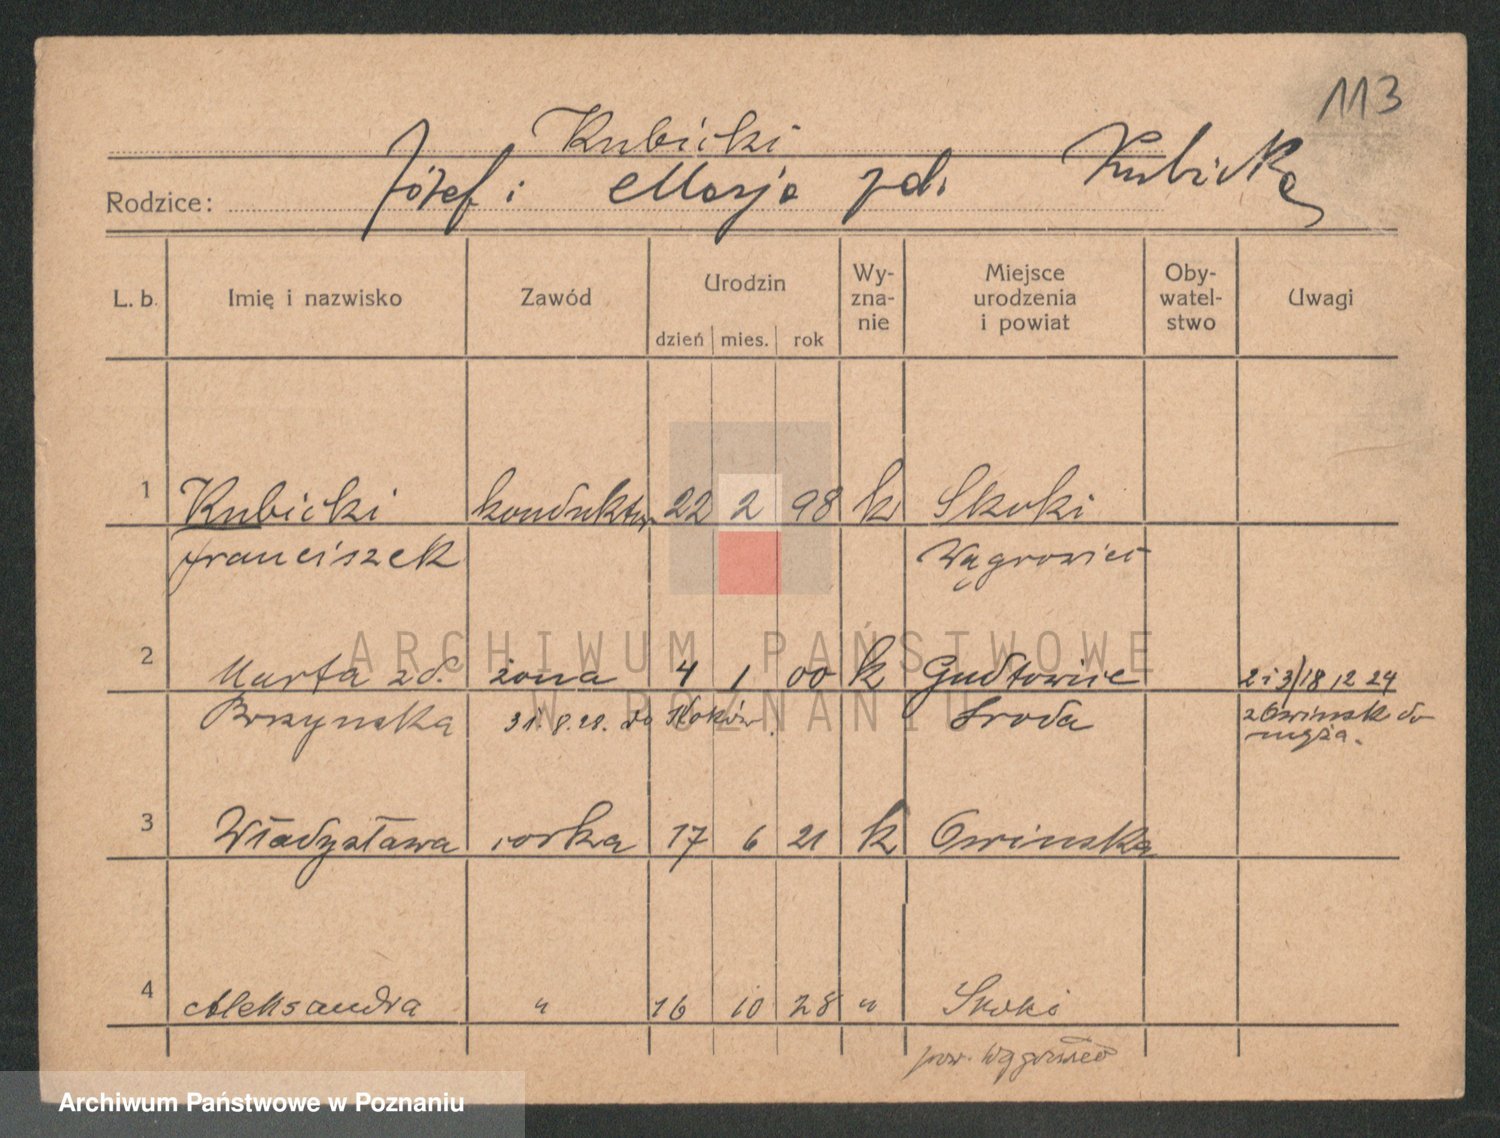 113
Kubicki
Rodzice: Józef i Marja zd. Kubicka
L. b. Imię i nazwisko Zawód Urodzin dzień mies. rok Wy-zna-nie Miejsce urodzenia i powiat Oby-watel-stwo Uwagi
1 Kubicki konduktor 22 2 98 k Skoki
Franciszek Wągrowiec
2 Marta zd. żona 4 1 00 k 2 i 3/18 12 24
31.8.28. do Środa z Owinsk do
męża.
3 Władysława córka 17 6 21 k Owinska
4 Aleksandra " 16 10 28 " Skoki
pow. Wągrowiec
ARCHIWUM PAŃSTWOWE
W POZNANIU
Archiwum Państwowe w Poznaniu